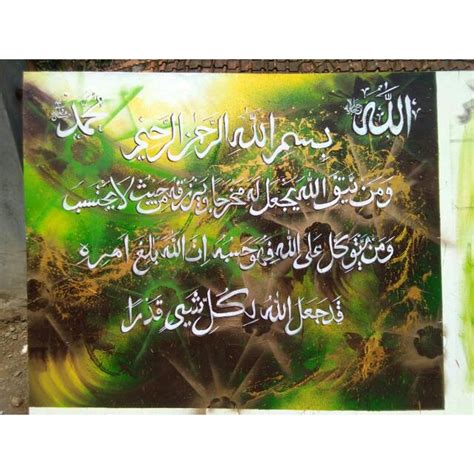 الله
محمد
بسم الله الرحمن الرحيم
ومن يتق الله يجعل له مخرجا ويرزقه من حيث لا يحتسب
ومن يتوكل على الله فهو حسبه ان الله بلغ امره
قد جعل الله لكل شيئ قدرا